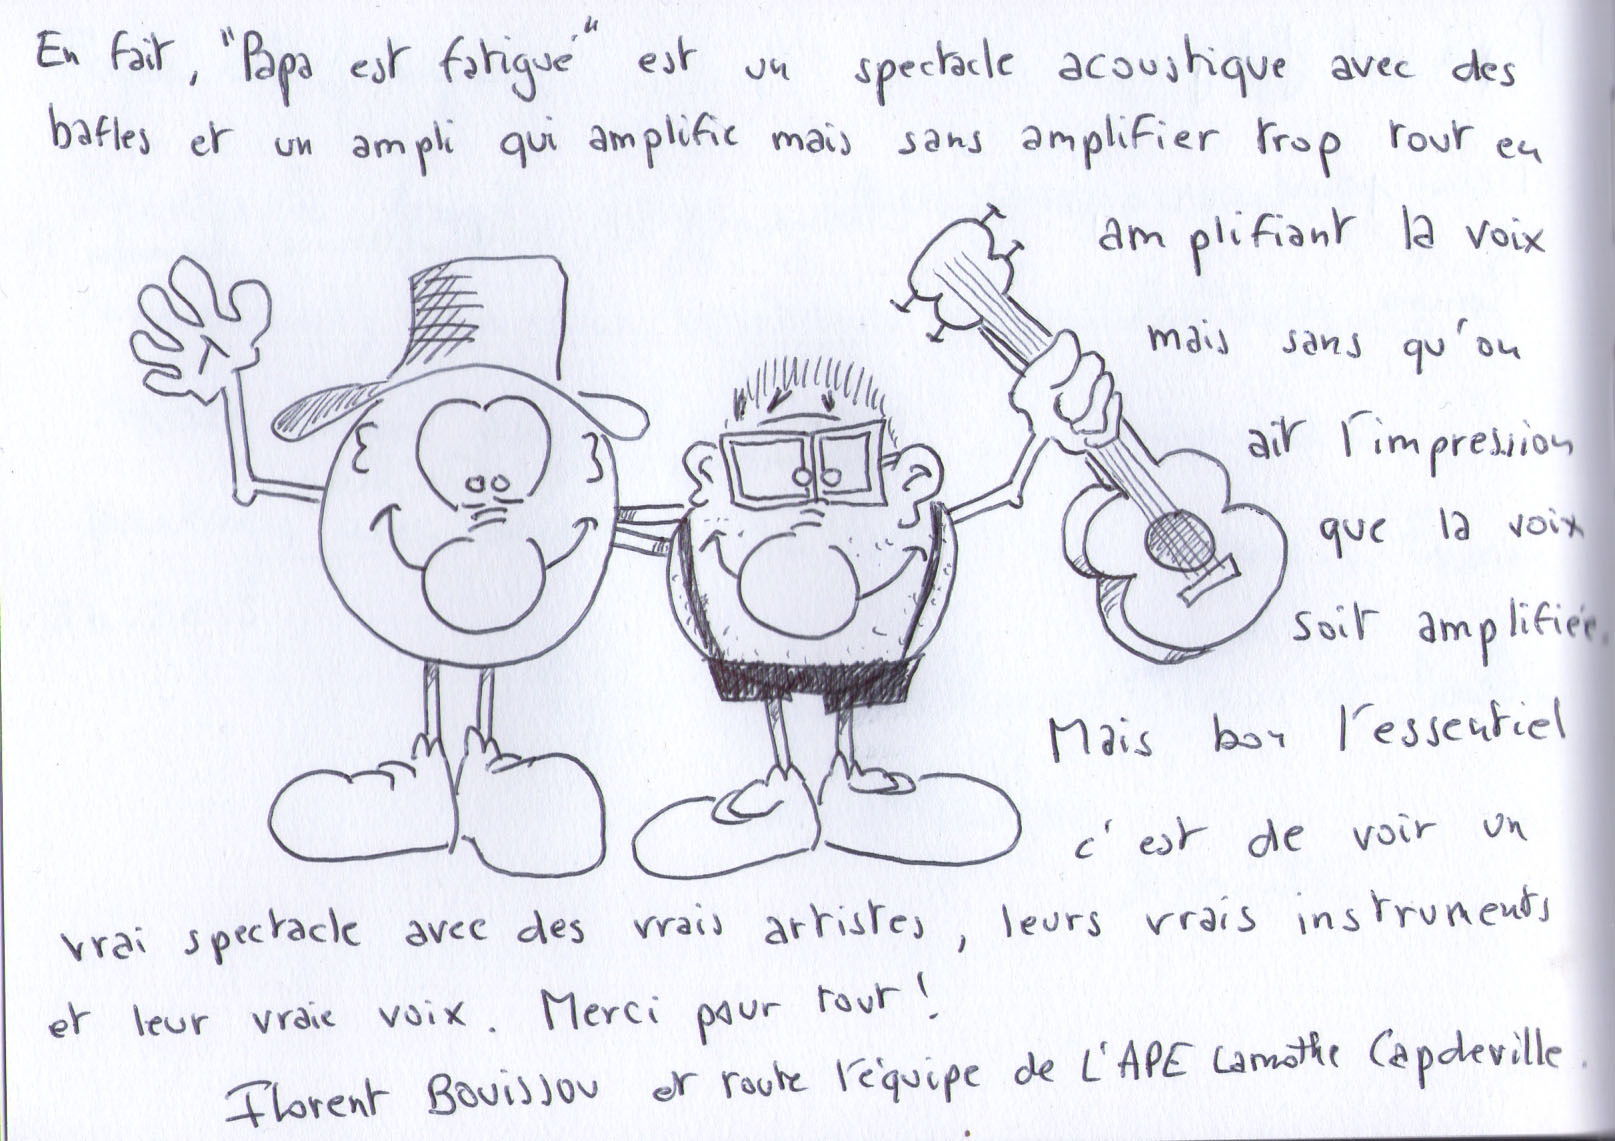 En fait, "Papa est fatigué" est un spectacle acoustique avec des
bafles et un ampli qui amplifie mais sans amplifier trop tout en
amplifiant la voix
mais sans qu'on
ait l'impression
que la voix
soit amplifiée.
Mais bon l'essentiel
c'est de voir un
vrai spectacle avec des vrais artistes, leurs vrais instruments
et leur vraie voix. Merci pour tout !
Florent Bouissou et toute l'équipe de L'APE Lamothe Capdeville.